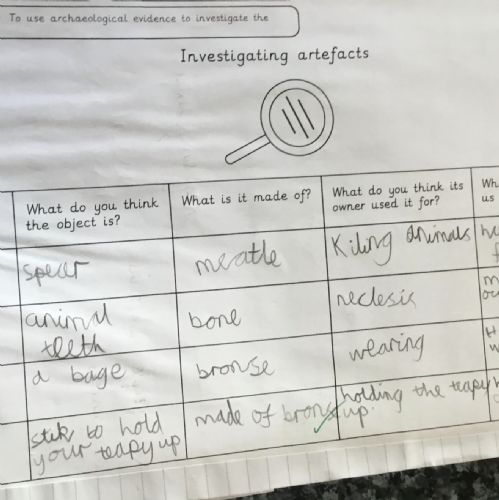 To use archaeological evidence to investigate the
Investigating artefacts
What do you think
the object is?
What is it made of?
What do you think its
owner used it for?
Wh
us
spear
meatle
Kiling animals
he
animal
teeth
bone
neclesis
m
a bage
bronse
wearing
H
w
stik to hold
your teapy up
made of bronse
holding the teapy
up.